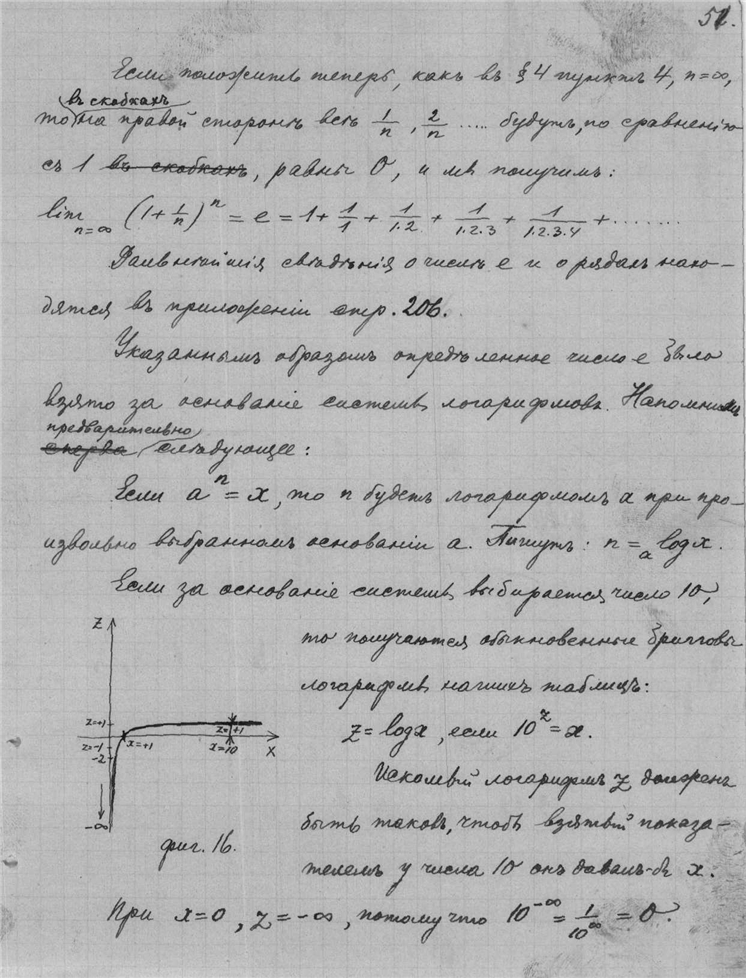 51.
Если положить теперь, какъ въ § 4 пунктъ 4, n=∞,
въ скобкахъ
то на правой сторонѣ всѣ 1/n, 2/n ..... будутъ, по сравненію
съ 1 въ скобкахъ, равны 0, и мы получимъ:
lim n=∞ (1+1/n)^n = e = 1+ 1/1 + 1/1.2 + 1/1.2.3 + 1/1.2.3.4 + .......
Дальнѣйшія свѣдѣнія о числѣ e и о рядахъ нахо-
дятся въ приложеніи стр. 206.
Указаннымъ образомъ опредѣленное число e было
взято за основаніе системы логарифмовъ. Напомнимъ
предварительно
сперва слѣдующее:
Если a^n = x, то n будетъ логарифмомъ x при про-
извольно выбранномъ основаніи a. Пишутъ: n = ₐlog x.
Если за основаніе системы выбирается число 10,
то получаются обыкновенные Бригговы
логарифмы нашихъ таблицъ:
z = log x, если 10^z = x.
Искомый логарифмъ z долженъ
быть таковъ, чтобъ взятый показа-
телемъ у числа 10 онъ давалъ-бы x.
z
z=+1
z=-1
-2
-∞
x=+1
z=+1
x=10
x
фиг. 16.
При x=0, z=-∞, потому что 10^-∞ = 1/10^∞ = 0.